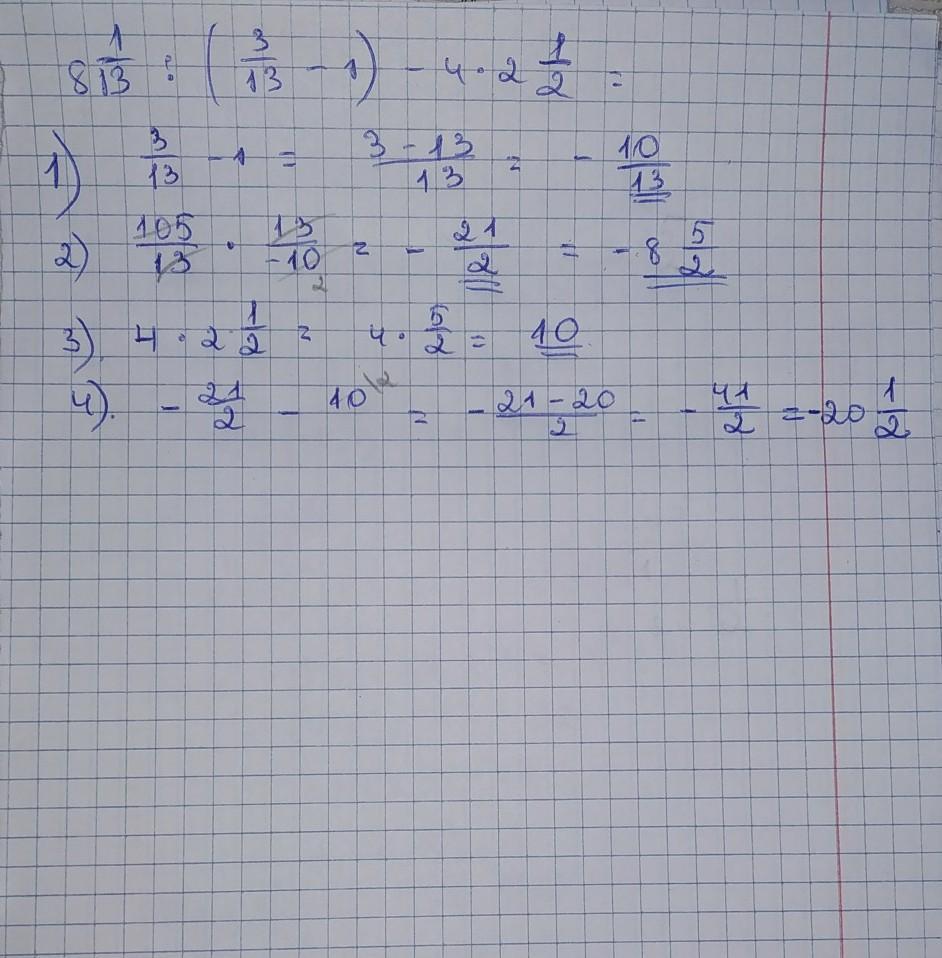 8 1/13 : (3/13 - 1) - 4 · 2 1/2 =
1) 3/13 - 1 = 3 - 13/13 = - 10/13
2) 105/13 · 13/-10 2 = - 21/2 = - 8 5/2
3) 4 · 2 1/2 = 4 · 5/2 = 10
4). - 21/2 - 10 \2 = - 21 - 20/2 = - 41/2 = -20 1/2